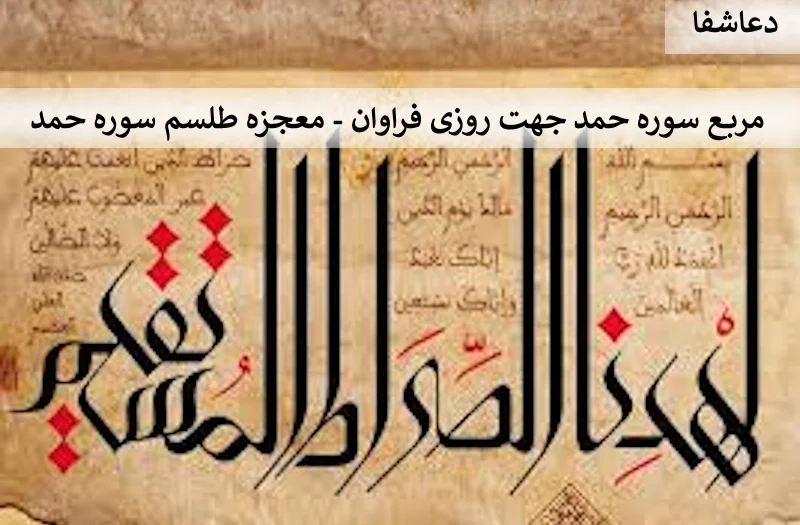 دعاشفا
مربع سوره حمد جهت روزی فراوان - معجزه طلسم سوره حمد
بسم الله
الرحمن الرحیم
الحمد لله رب
العالمین
الرحمن الرحیم
مالک یوم الدین
إیاک نعبد
وإیاک نستعین
صراط الذین انعمت علیهم
غیر المغضوب علیهم
ولا الضالین
صدق الله
العلی
العظیم
اهْدِنا الصّراط المُستقیم